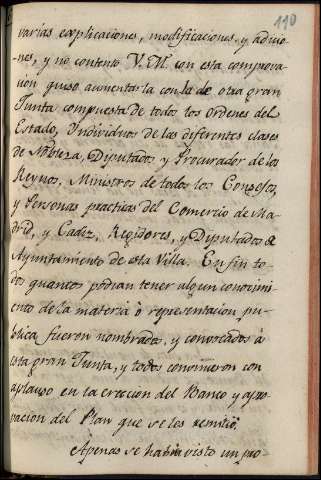 110
varias explicaciones, modificaciones, y adicio-
-nes, y no contento V. M. con esta comproba-
cion quiso aumentarla con la de otra gran
Junta compuesta de todos los ordenes del
Estado, Individuos de las diferentes clases
de Nobleza, Diputados y Procurador de los
Reynos, Ministros de todos los Consejos,
y Personas practicas del Comercio de Ma-
drid, y Cadiz, Regidores, y Diputados de
Ayuntamiento de esta Villa. En fin to-
dos quantos podian tener algun conocimi-
ento de la materia ò representacion pu-
blica fueron nombrados, y convocados à
esta gran Junta, y todos convinieron con
aplauso en la ereccion del Banco y apro-
vacion del Plan que se les remitiò.
Apenas se habia visto un pro-